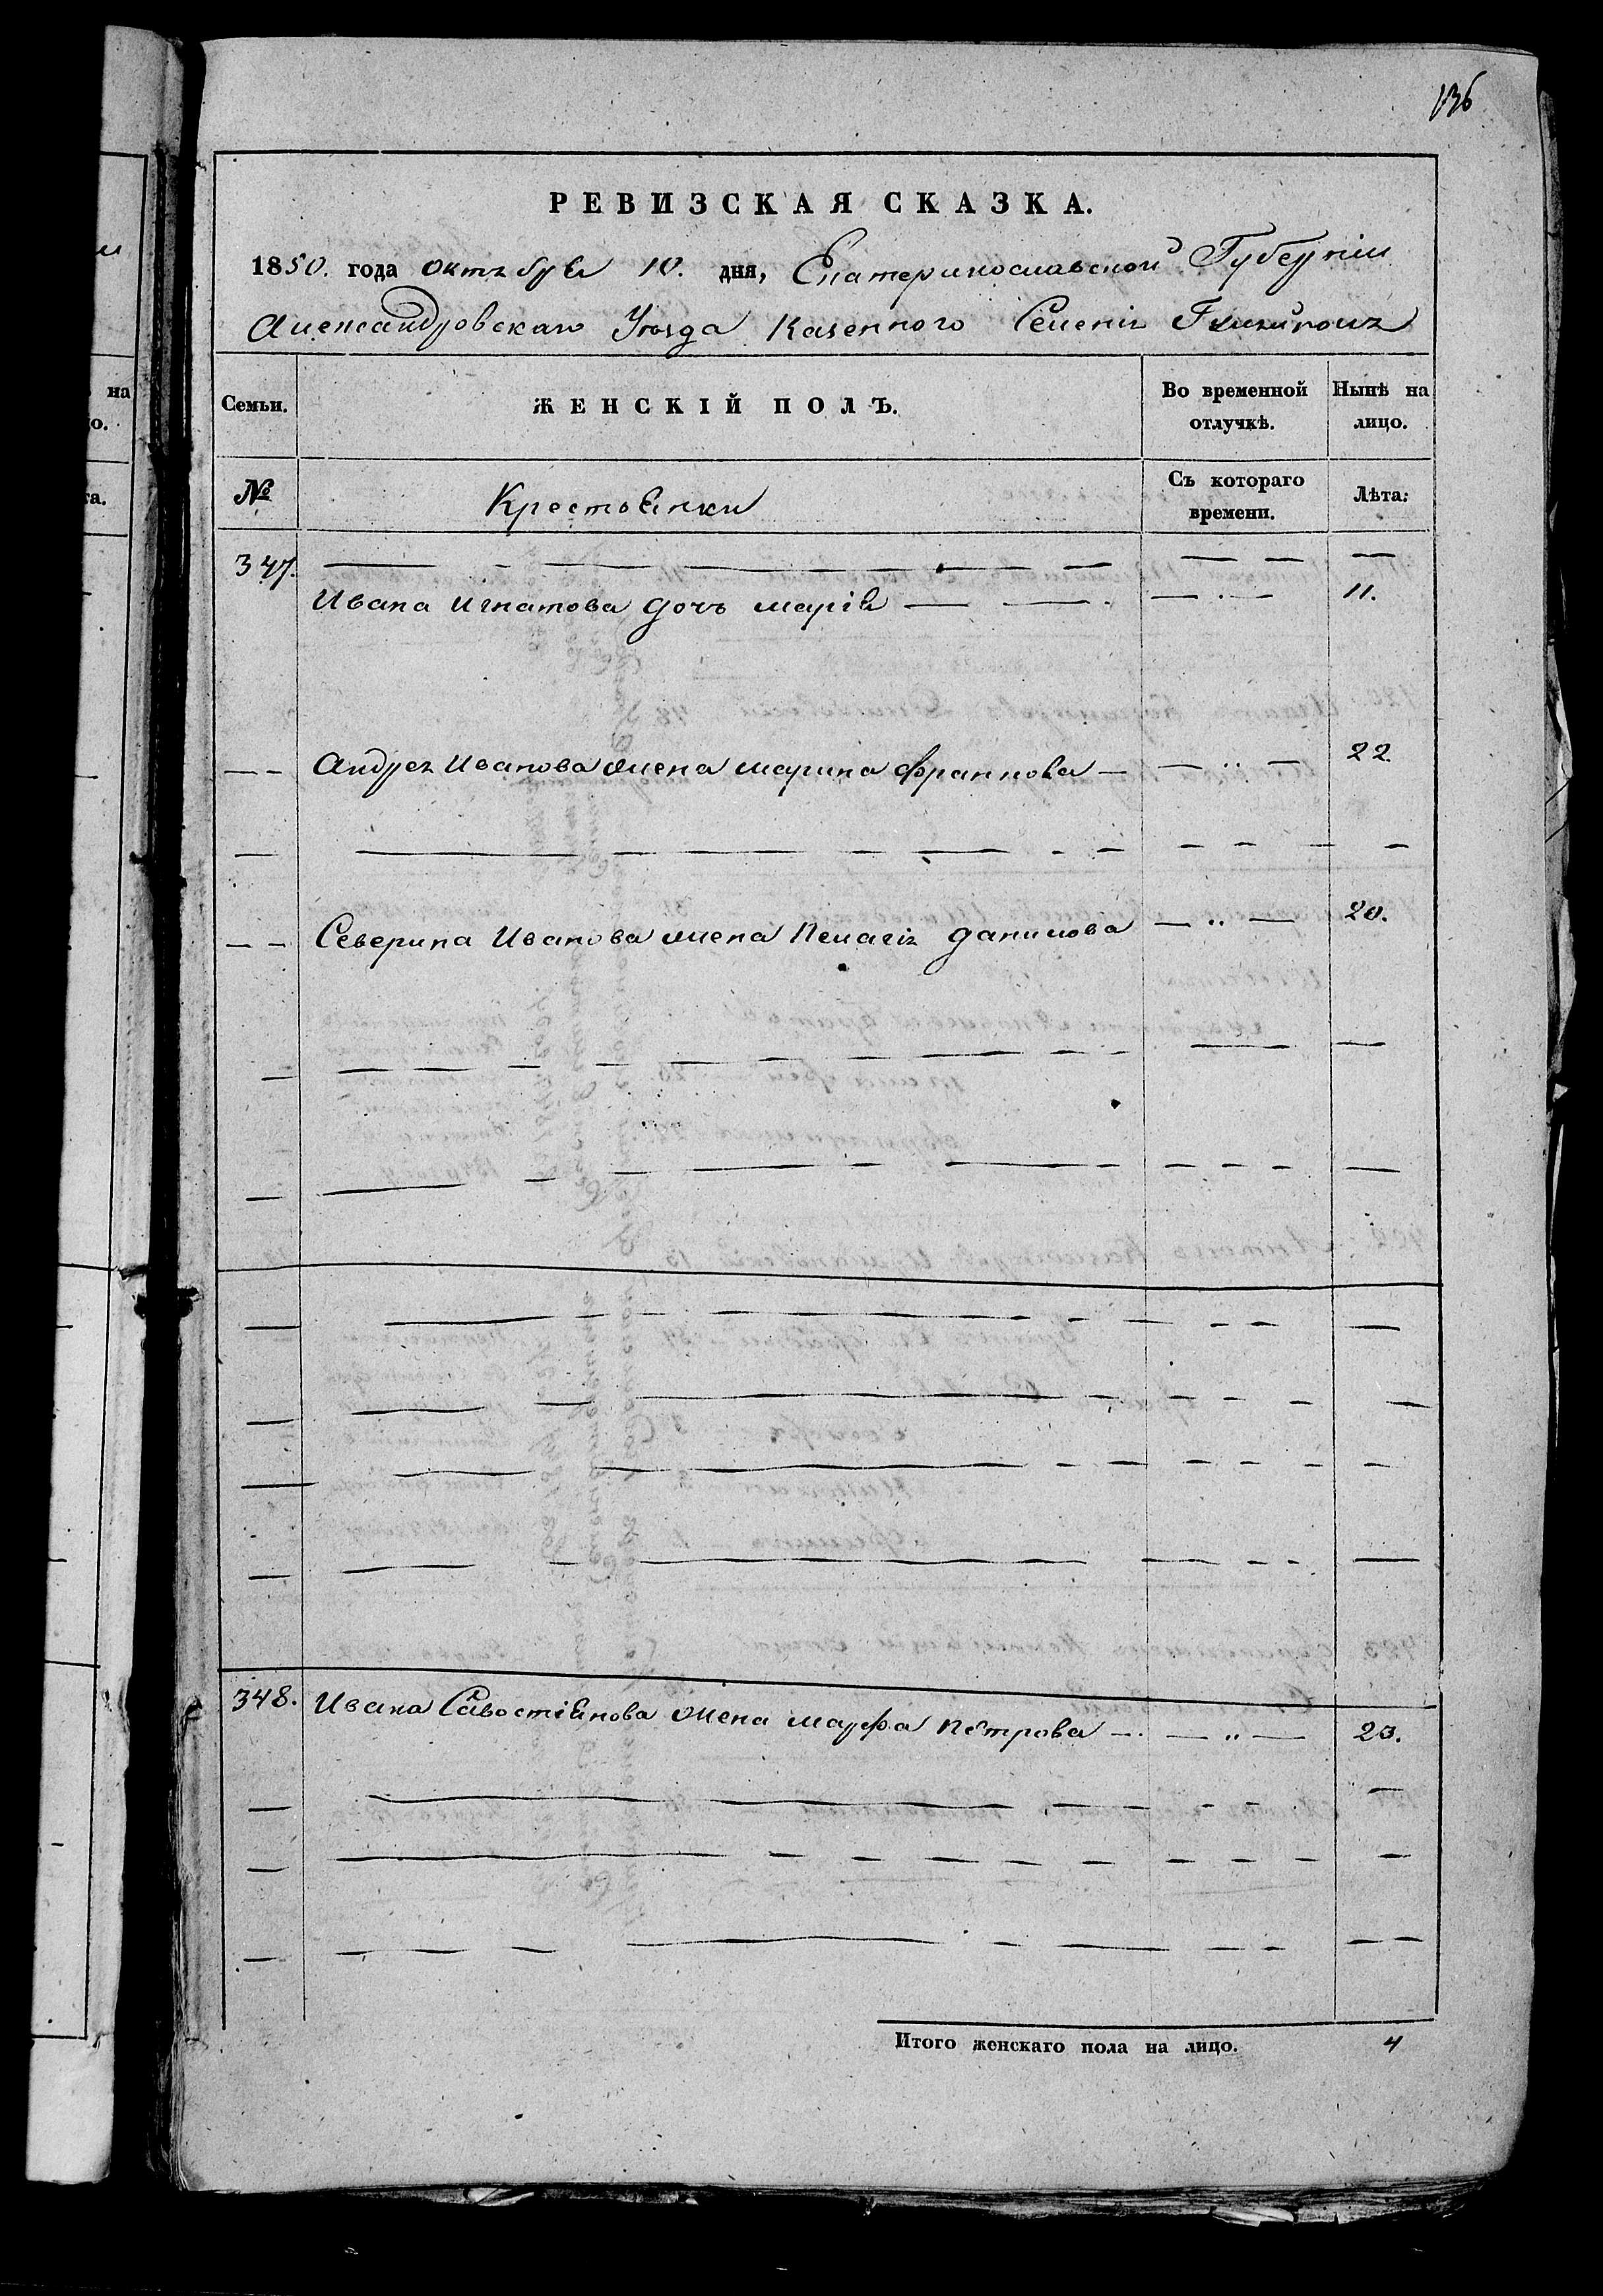 136
РЕВИЗСКАЯ СКАЗКА.
1850. года октября 10. дня, Екатеринославской Губерніи
Александровскаго Уѣзда Казенного Селенія
Семьи. ЖЕНСКІЙ ПОЛЪ. Во временной отлучкѣ. Нынѣ на лицо.
№ Крестьянки Съ котораго времени. Лѣта.
347.
Ивана Игнатова дочь марія 11.
Андрея Иванова жена марина 22.
Северина Иванова жена Пелагія данилова 20.
348. Ивана Савостіянова жена марфа петрова 23.
Итого женскаго пола на лицо. 4
на
о.
та.